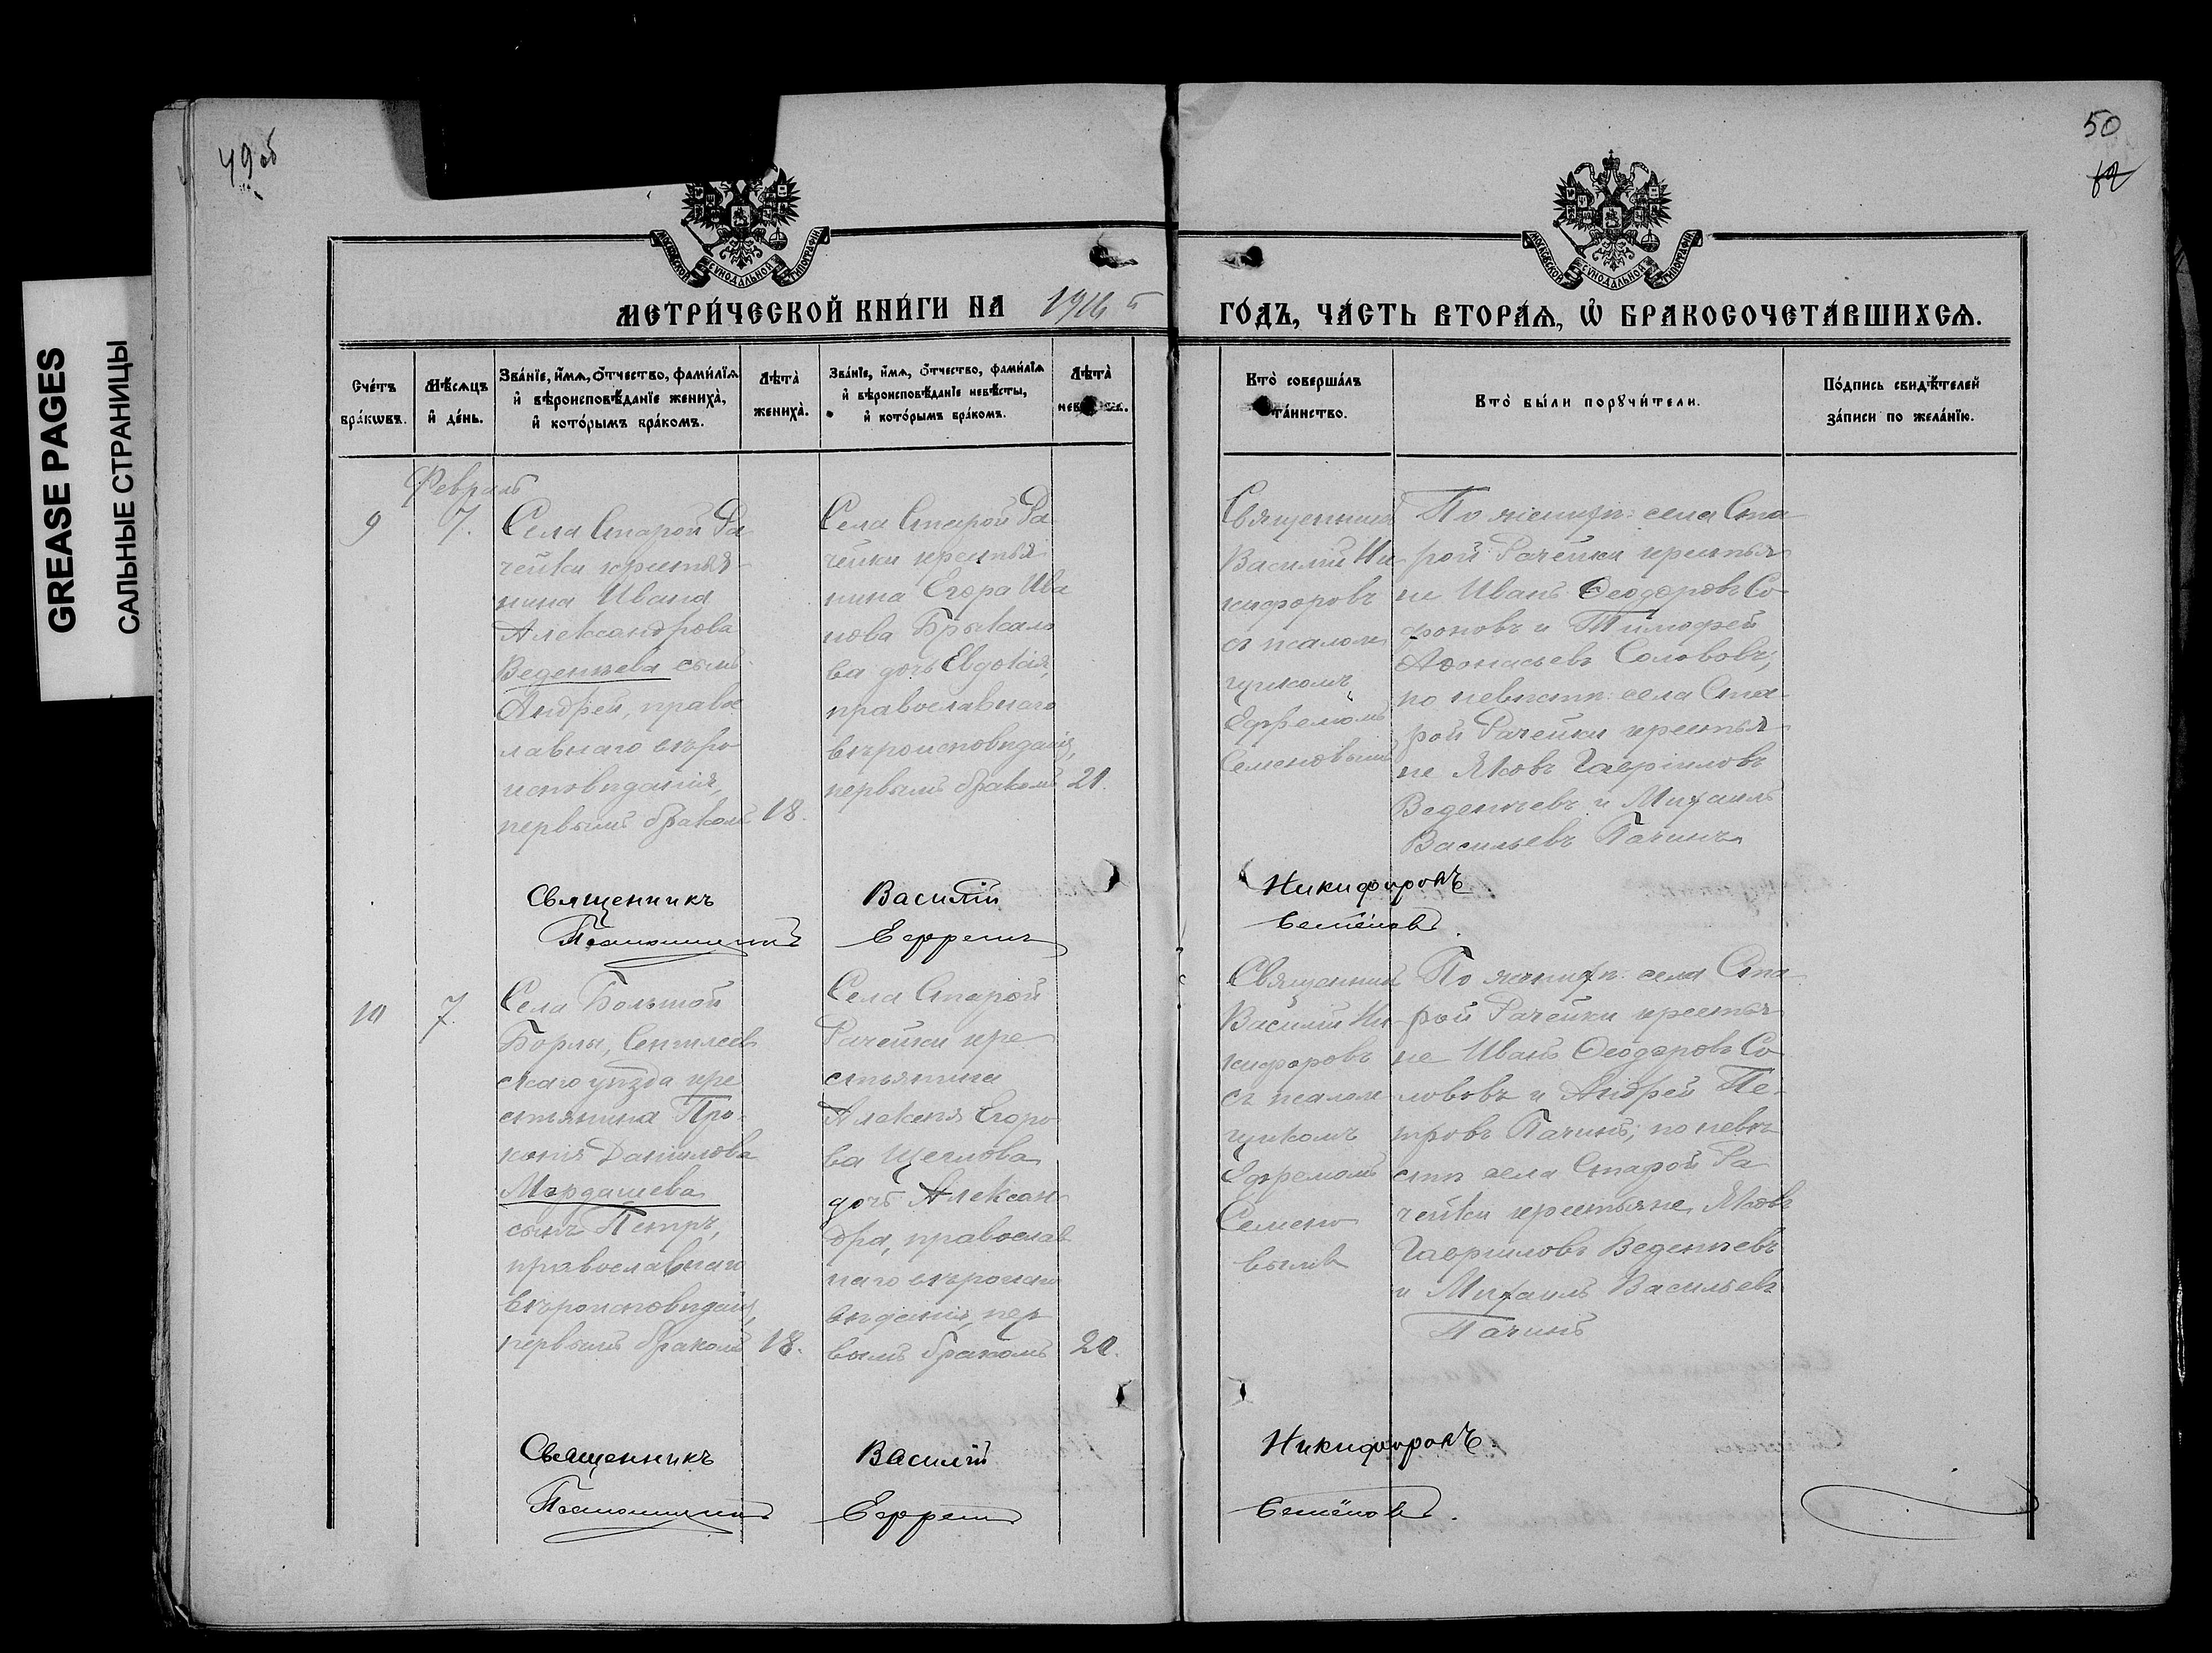 49об
50
62
GREASE PAGES
САЛЬНЫЕ СТРАНИЦЫ
МОСКОВСКОЙ СѴНОДАЛЬНОЙ ТИПОГРАФІИ
МОСКОВСКОЙ СѴНОДАЛЬНОЙ ТИПОГРАФІИ
МЕТРИ́ЧЕСКОЙ КНИ́ГИ НА 1916 й
ГО́ДЪ, ЧА́СТЬ ВТОРА́Ѧ, Ѡ҆ БРАКОСОЧЕТА́ВШИХСѦ.
Сче́тъ
бра́кѡвъ.
Мѣ́сѧцъ
и҆ де́нь.
Зва́нїе, и҆́мѧ, ѻ҆́тчество, фами́лїѧ
и҆ вѣроисповѣ́данїе жениха̀,
и҆ кото́рымъ бра́комъ.
Лѣта̀
жениха̀.
Зва́нїе, и҆́мѧ, ѻ҆́тчество, фами́лїѧ
и҆ вѣроисповѣ́данїе невѣ́сты,
и҆ кото́рымъ бра́комъ.
Лѣта̀
Кто̀ соверша́лъ
та́инство.
Кто̀ бы́ли порꙋчи́тели.
По́дпись свидѣ́телей
за́писи по жела́нїю.
Февраль
9
7.
Села Старой Ра
чейки крестья-
нина Ивана
Александрова
Веденѣева сынъ
Андрей, правос
лавнаго вѣро
исповѣданія,
первымъ бракомъ
18.
Села Старой Ра
чейки крестья
нина Егора Ива
нова Брыкало
ва дочь Евдокія,
православнаго
вѣроисповѣданія,
первымъ бракомъ
21.
Священникъ
Василій Ни
кифоровъ
съ псалом
щикомъ
Ефремомъ
Семеновымъ
По женихѣ: села Ста
рой Рачейки крестья
не Иванъ Ѳеодоровъ Со
фоновъ и Тимофей
Аѳонасьевъ Солововъ,
по невѣстѣ: села Ста-
рой Рачейки крестья
не Яковъ Гавріиловъ
Веденѣевъ и Михаилъ
Васильевъ Пачинъ
Священникъ
Василій
Никифоровъ
Псаломщикъ
Ефремъ
Семёновъ.
10
7.
Села Большой
Борлы, Сенгилеев
скаго уѣзда кре
стьянина Про-
копія Данилова
Мордашева
сынъ Петръ,
православнаго
вѣроисповѣданія,
первымъ бракомъ
18.
Села Старой
Рачейки кре
стьянина
Алексѣя Егоро
ва Щеглова
дочь Алексан
дра, православ
наго вѣроиспо
вѣданія, пер
вымъ бракомъ
20.
Священникъ
Василій Ни-
кифоровъ
съ псалом
щикомъ
Ефремомъ
Семено
вымъ
По женихѣ: села Ста
рой Рачейки крестья
не Иванъ Ѳеодоровъ Со
лововъ и Андрей Пе-
тровъ Пачинъ; по невѣ
стѣ села Старой Ра
чейки крестьяне, Яковъ
Гавриловъ Веденѣевъ
и Михаилъ Васильевъ
Пачинъ
Священникъ
Василій
Никифоровъ.
Псаломщикъ
Ефремъ
Семёновъ.